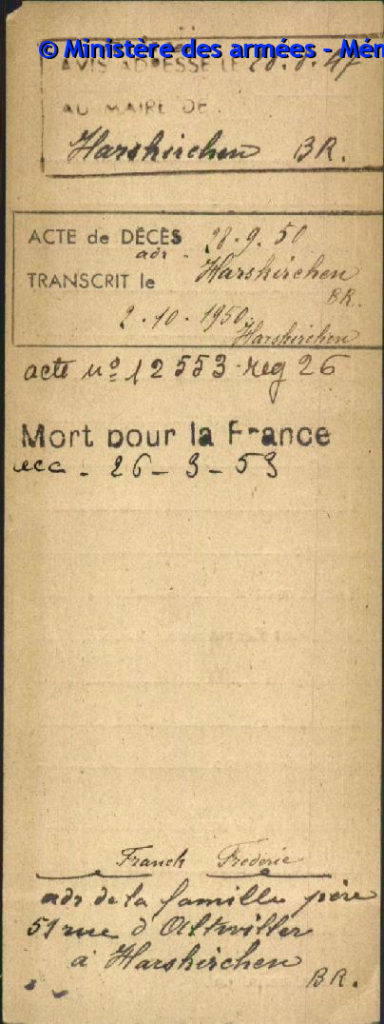 © Ministère des armées - Mém
AVIS ADRESSE LE 20.8.47
AU MAIRE DE
Harskirchen BR.
ACTE de DÉCÈS 28.9.50
adr. Harskirchen
TRANSCRIT le BR.
2.10.1950 Harskirchen
acte nº 12553 reg 26
Mort pour la France
26-3-53
Franck Frederic
adr de la famille père
51 rue d'Altwiller
à Harskirchen
BR.